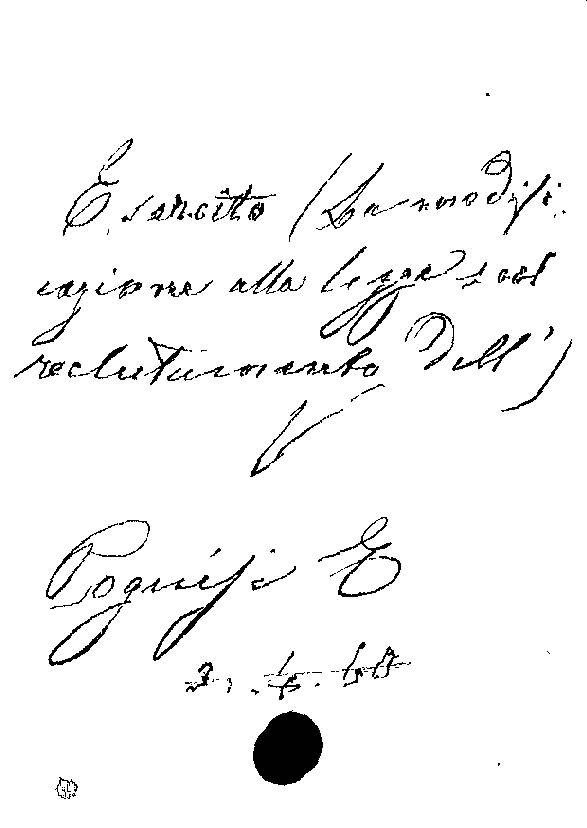 Esercito (La modifi
cazione alla legge sul
reclutamento dell')
V
E